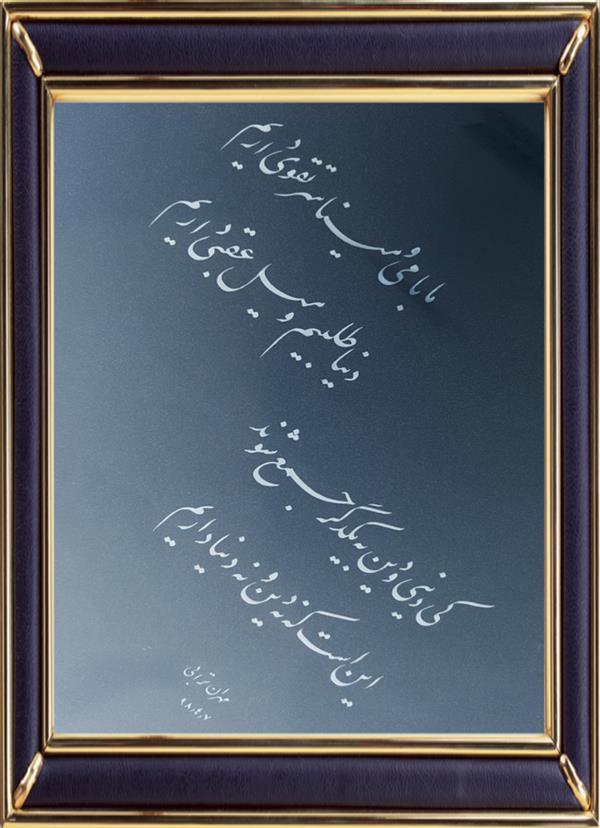 ما با می و مینا سر تقوی داریم
دنیا طلبیم و میل عقبی داریم
کی دنیی و دین به یکدگر جمع شوند
این است که نه دین و نه دنیا داریم
مهران ترابی